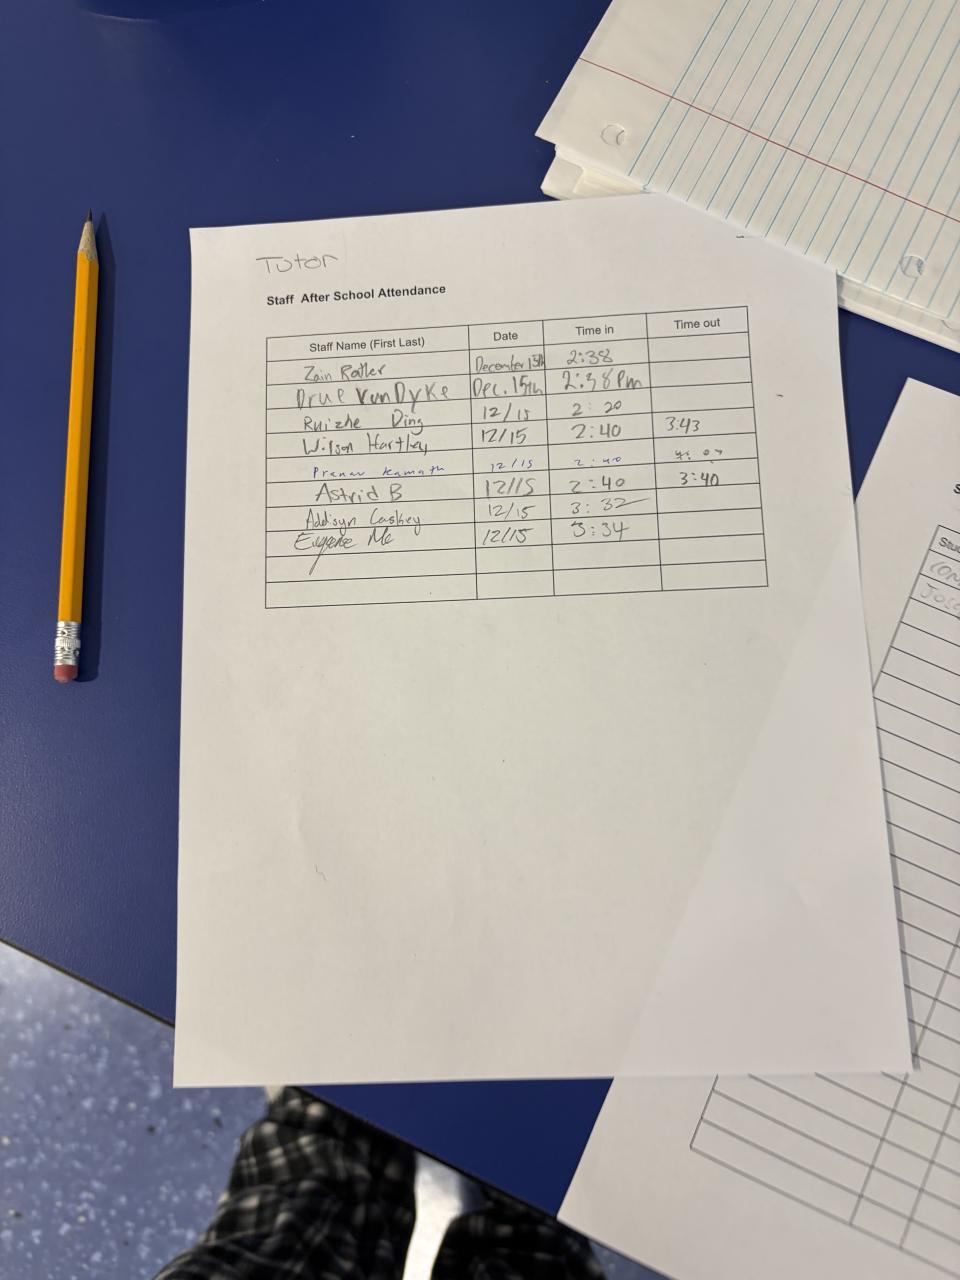 Tutor
Staff After School Attendance
Staff Name (First Last) Date Time in Time out
Zain December 15th 2:38
Drue VanDyke Dec. 15th 2:38 pm
Ruizhe Ding 12/15 2:20
Wilson Hartley 12/15 2:40 3:43
Pranav Kamath 12/15 2:40
Astrid B 12/15 2:40 3:40
Addisyn Caskey 12/15 3:32
Eugene Mc 12/15 3:34